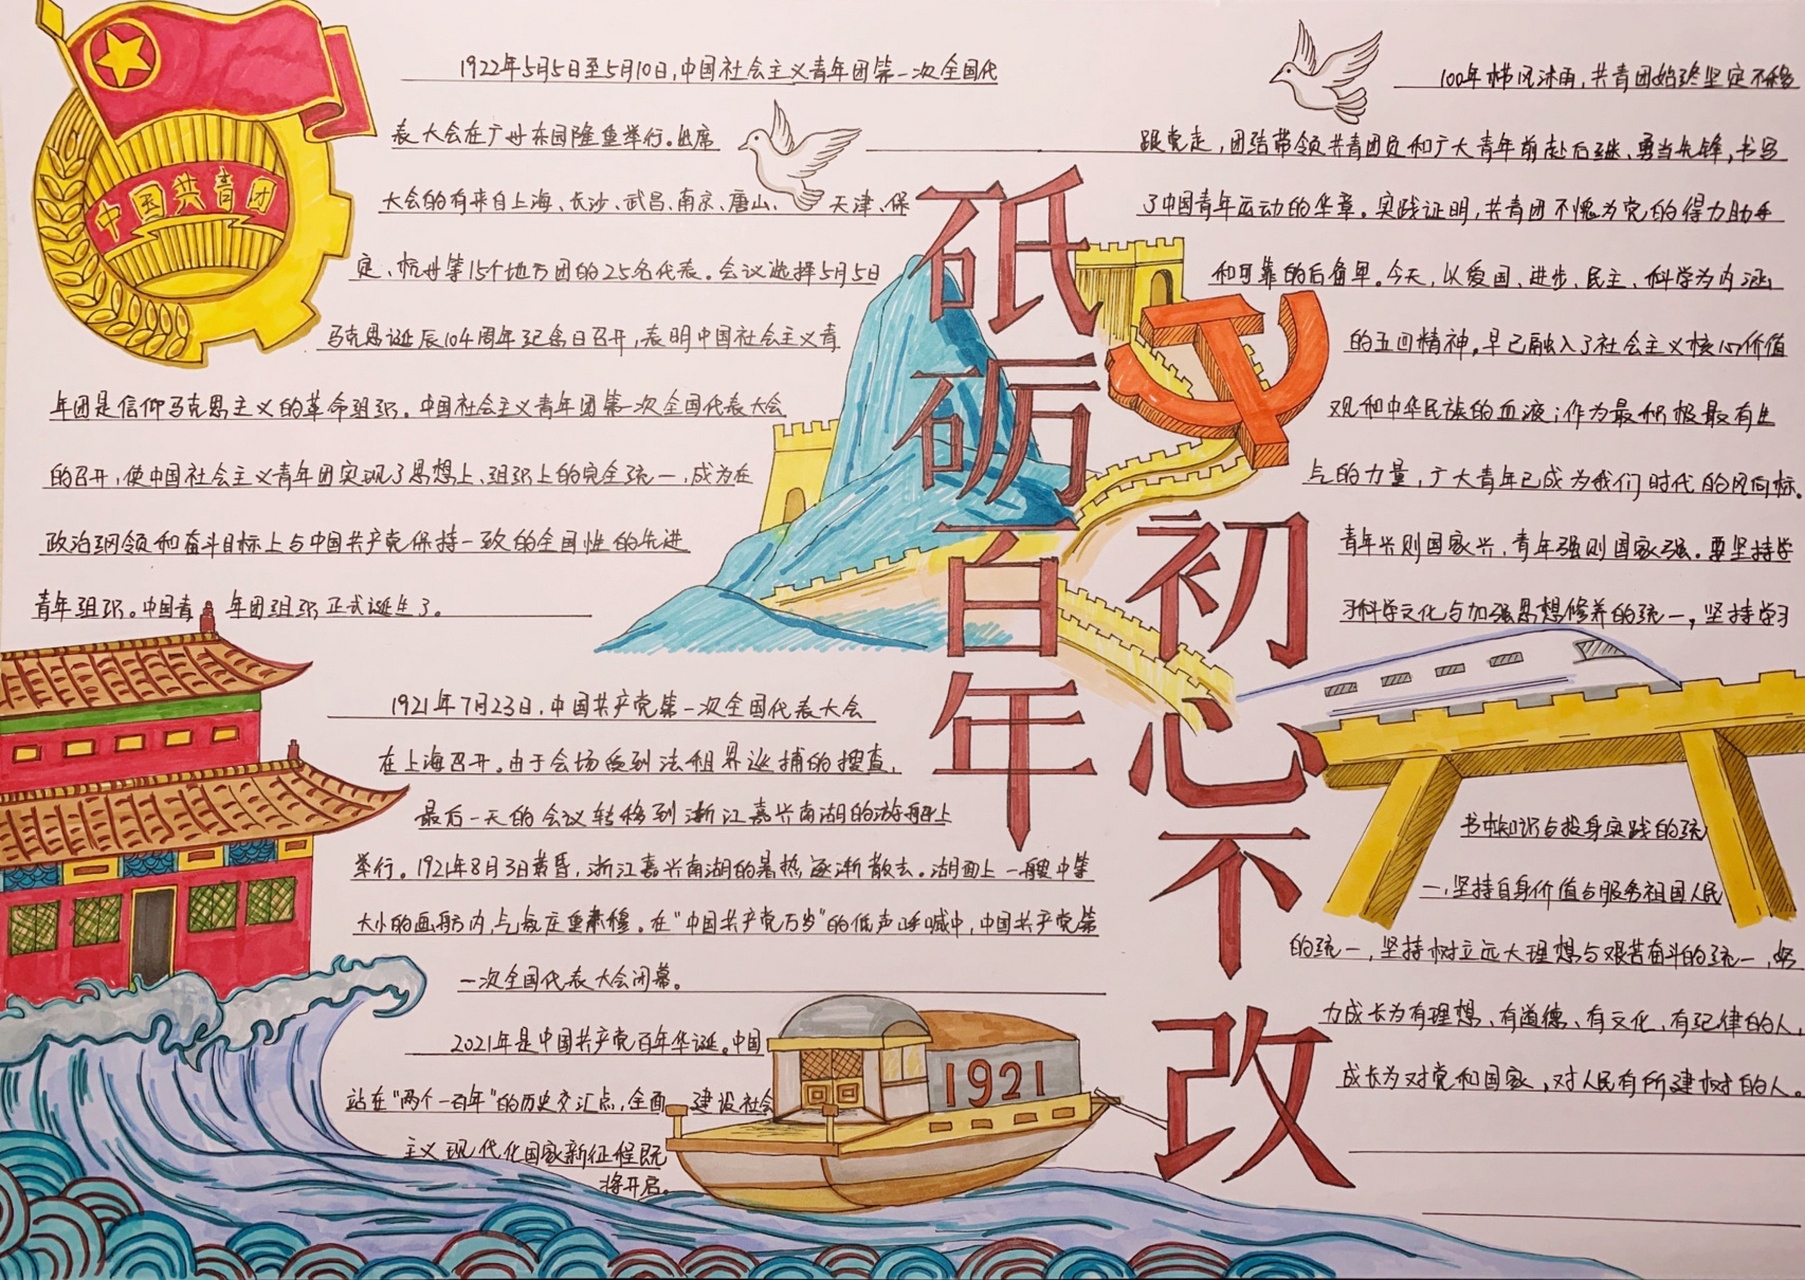 中国共青团
1922年5月5日至5月10日,中国社会主义青年团第一次全国代
表大会在广州东园隆重举行。出席
大会的有来自上海、长沙、武昌、南京、唐山、天津、保
定、杭州等15个地方团的25名代表。会议选择5月5日
马克思诞辰104周年纪念日召开,表明中国社会主义青
年团是信仰马克思主义的革命组织。中国社会主义青年团第一次全国代表大会
的召开,使中国社会主义青年团实现了思想上、组织上的完全统一,成为在
政治纲领和奋斗目标上与中国共产党保持一致的全国性的先进
青年组织。中国青年团组织正式诞生了。
1921年7月23日,中国共产党第一次全国代表大会
在上海召开。由于会场受到法租界巡捕的搜查,
最后一天的会议转移到浙江嘉兴南湖的游船上
举行。1921年8月3日黄昏,浙江嘉兴南湖的暑热逐渐散去。湖面上一艘中等
大小的画舫内,气氛庄重肃穆。在"中国共产党万岁"的低声呼喊中,中国共产党第
一次全国代表大会闭幕。
2021年是中国共产党百年华诞。中国
站在"两个一百年"的历史交汇点,全面建设社会
主义现代化国家新征程既
将开启。
1921
砥砺百年
初心不改
100年栉风沐雨,共青团始终坚定不移
跟党走,团结带领共青团员和广大青年前赴后继、勇当先锋,书写
了中国青年运动的华章。实践证明,共青团不愧为党的得力助手
和可靠的后备军。今天,以爱国、进步、民主、科学为内涵
的五四精神,早已融入了社会主义核心价值
观和中华民族的血液;作为最积极最有生
气的力量,广大青年已成为我们时代的风向标。
青年兴则国家兴,青年强则国家强。要坚持学
习科学文化与加强思想修养的统一,坚持学习
书本知识与投身实践的统
一,坚持自身价值与服务祖国人民
的统一,坚持树立远大理想与艰苦奋斗的统一,努
力成长为有理想、有道德、有文化、有纪律的人,
成长为对党和国家,对人民有所建树的人。